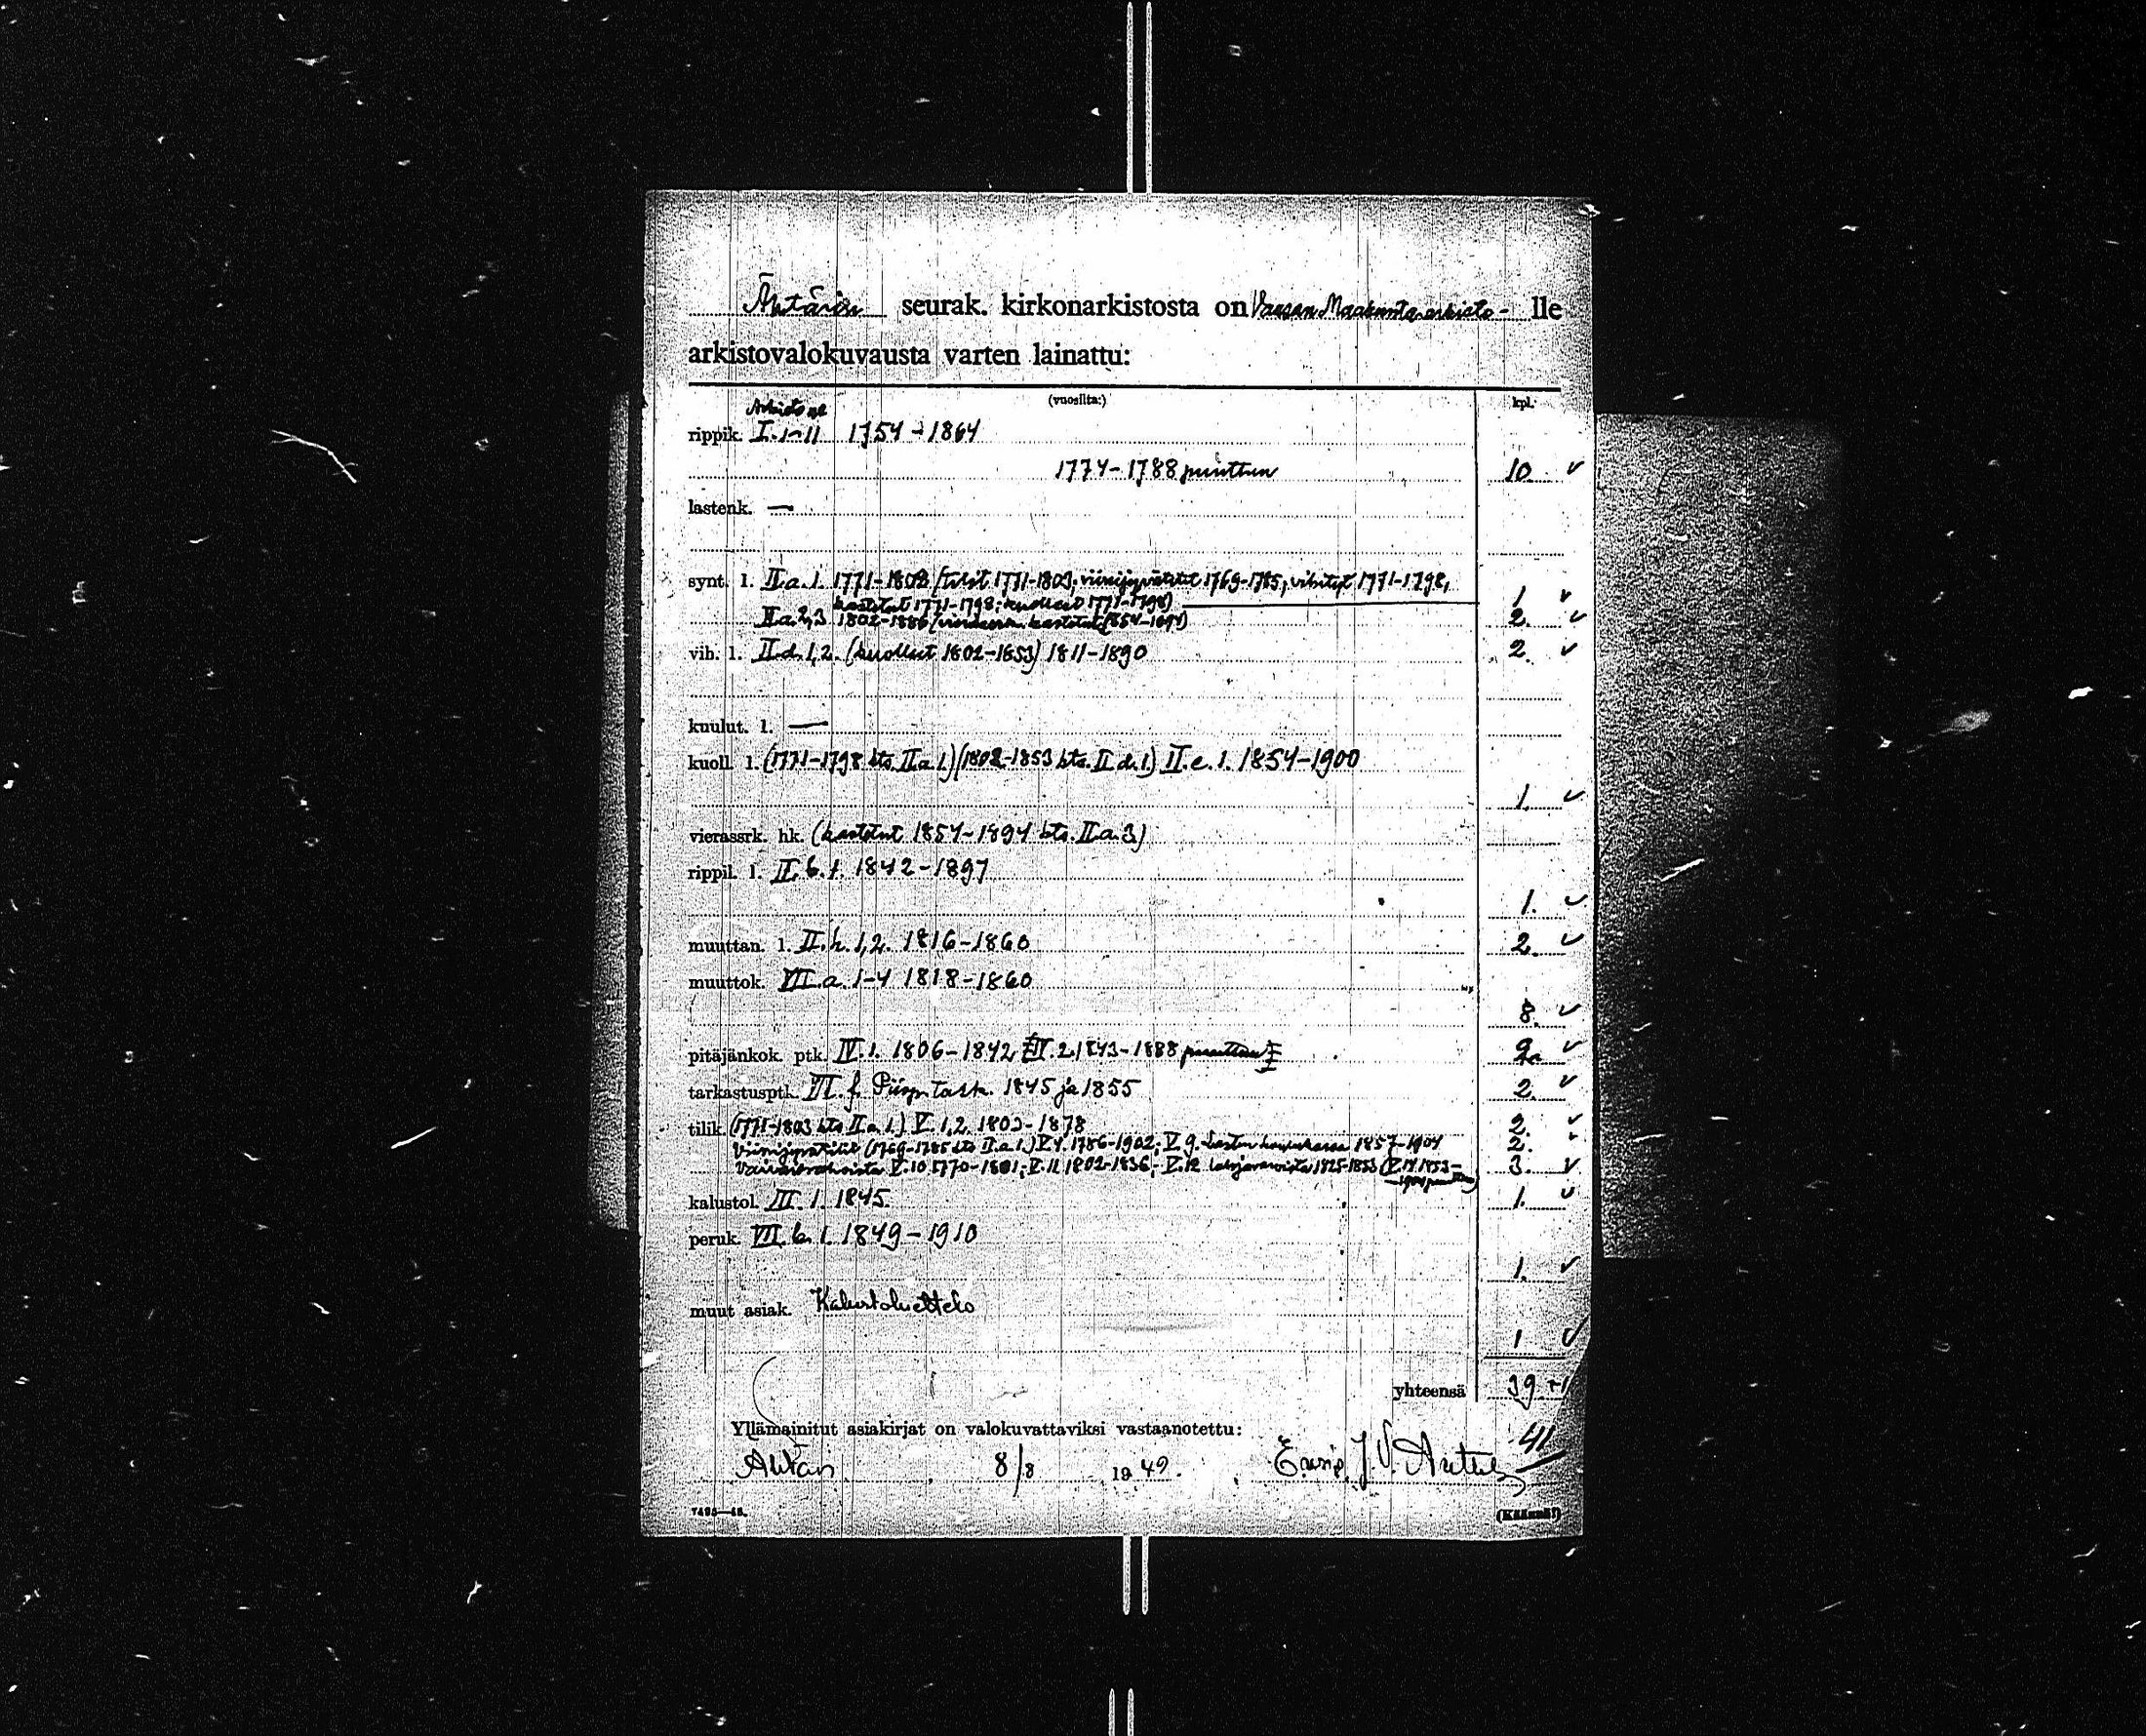 Ähtärin seurak. kirkonarkistosta on Vaasan Maakunta-arkisto- lle
arkistovalokuvausta varten lainattu:
(vuosilta:) kpl.
rippik. I. 1-11 1754-1864
1774-1788 puuttuu 10
lastenk. —
synt. l. II.a.1. 1771-1802 (tilit 1771-1803; viinijyvätilit 1769-1785; vihityt 1771-1798,
kastetut 1771-1798; kuolleet 1771-1798) 1
II.a.2,3 1802-1886 kastetut 1854-1894) 2.
vih. l. II.d. 1,2. (kuolleet 1802-1853) 1811-1890 2.
kuulut. l. —
kuoll. l. (1771-1798 kts. II.a.1.) (1802-1853 kts. II.d.1.) II.e.1. 1854-1900
1.
vierassrk. hk. (kastetut 1854-1894 kts. II.a.3)
rippil. l. II.b.1. 1842-1897
1.
muuttan. l. II.h. 1,2. 1816-1860 2.
muuttok. VII.a. 1-4 1818-1860
8.
pitäjänkok. ptk. IV.1. 1806-1842 IV.2. 1843-1888 puuttuu
tarkastusptk. VII.f. Piispantark. 1845 ja 1855 2.
tilik. (1771-1803 kts II.a.1.) V. 1,2. 1803-1878 2.
Viinijyvätilit (1769-1785 kts II.a.1.) V.4. 1786-1902; V.9. Lasten 1857-1904 2.
V.10. 1770-1801; V.11. 1802-1836; V.12. 1825-1853 (V.14. 1853- 3.
1904 puuttuu)
kalustol. III.1. 1845. 1.
peruk. VII.b.1. 1849-1910
1.
muut asiak. Kalustoluettelo
1
yhteensä 39 +1
41
Yllämainitut asiakirjat on valokuvattaviksi vastaanotettu:
Ähtäri 8/8 1949.
(Käännä!)